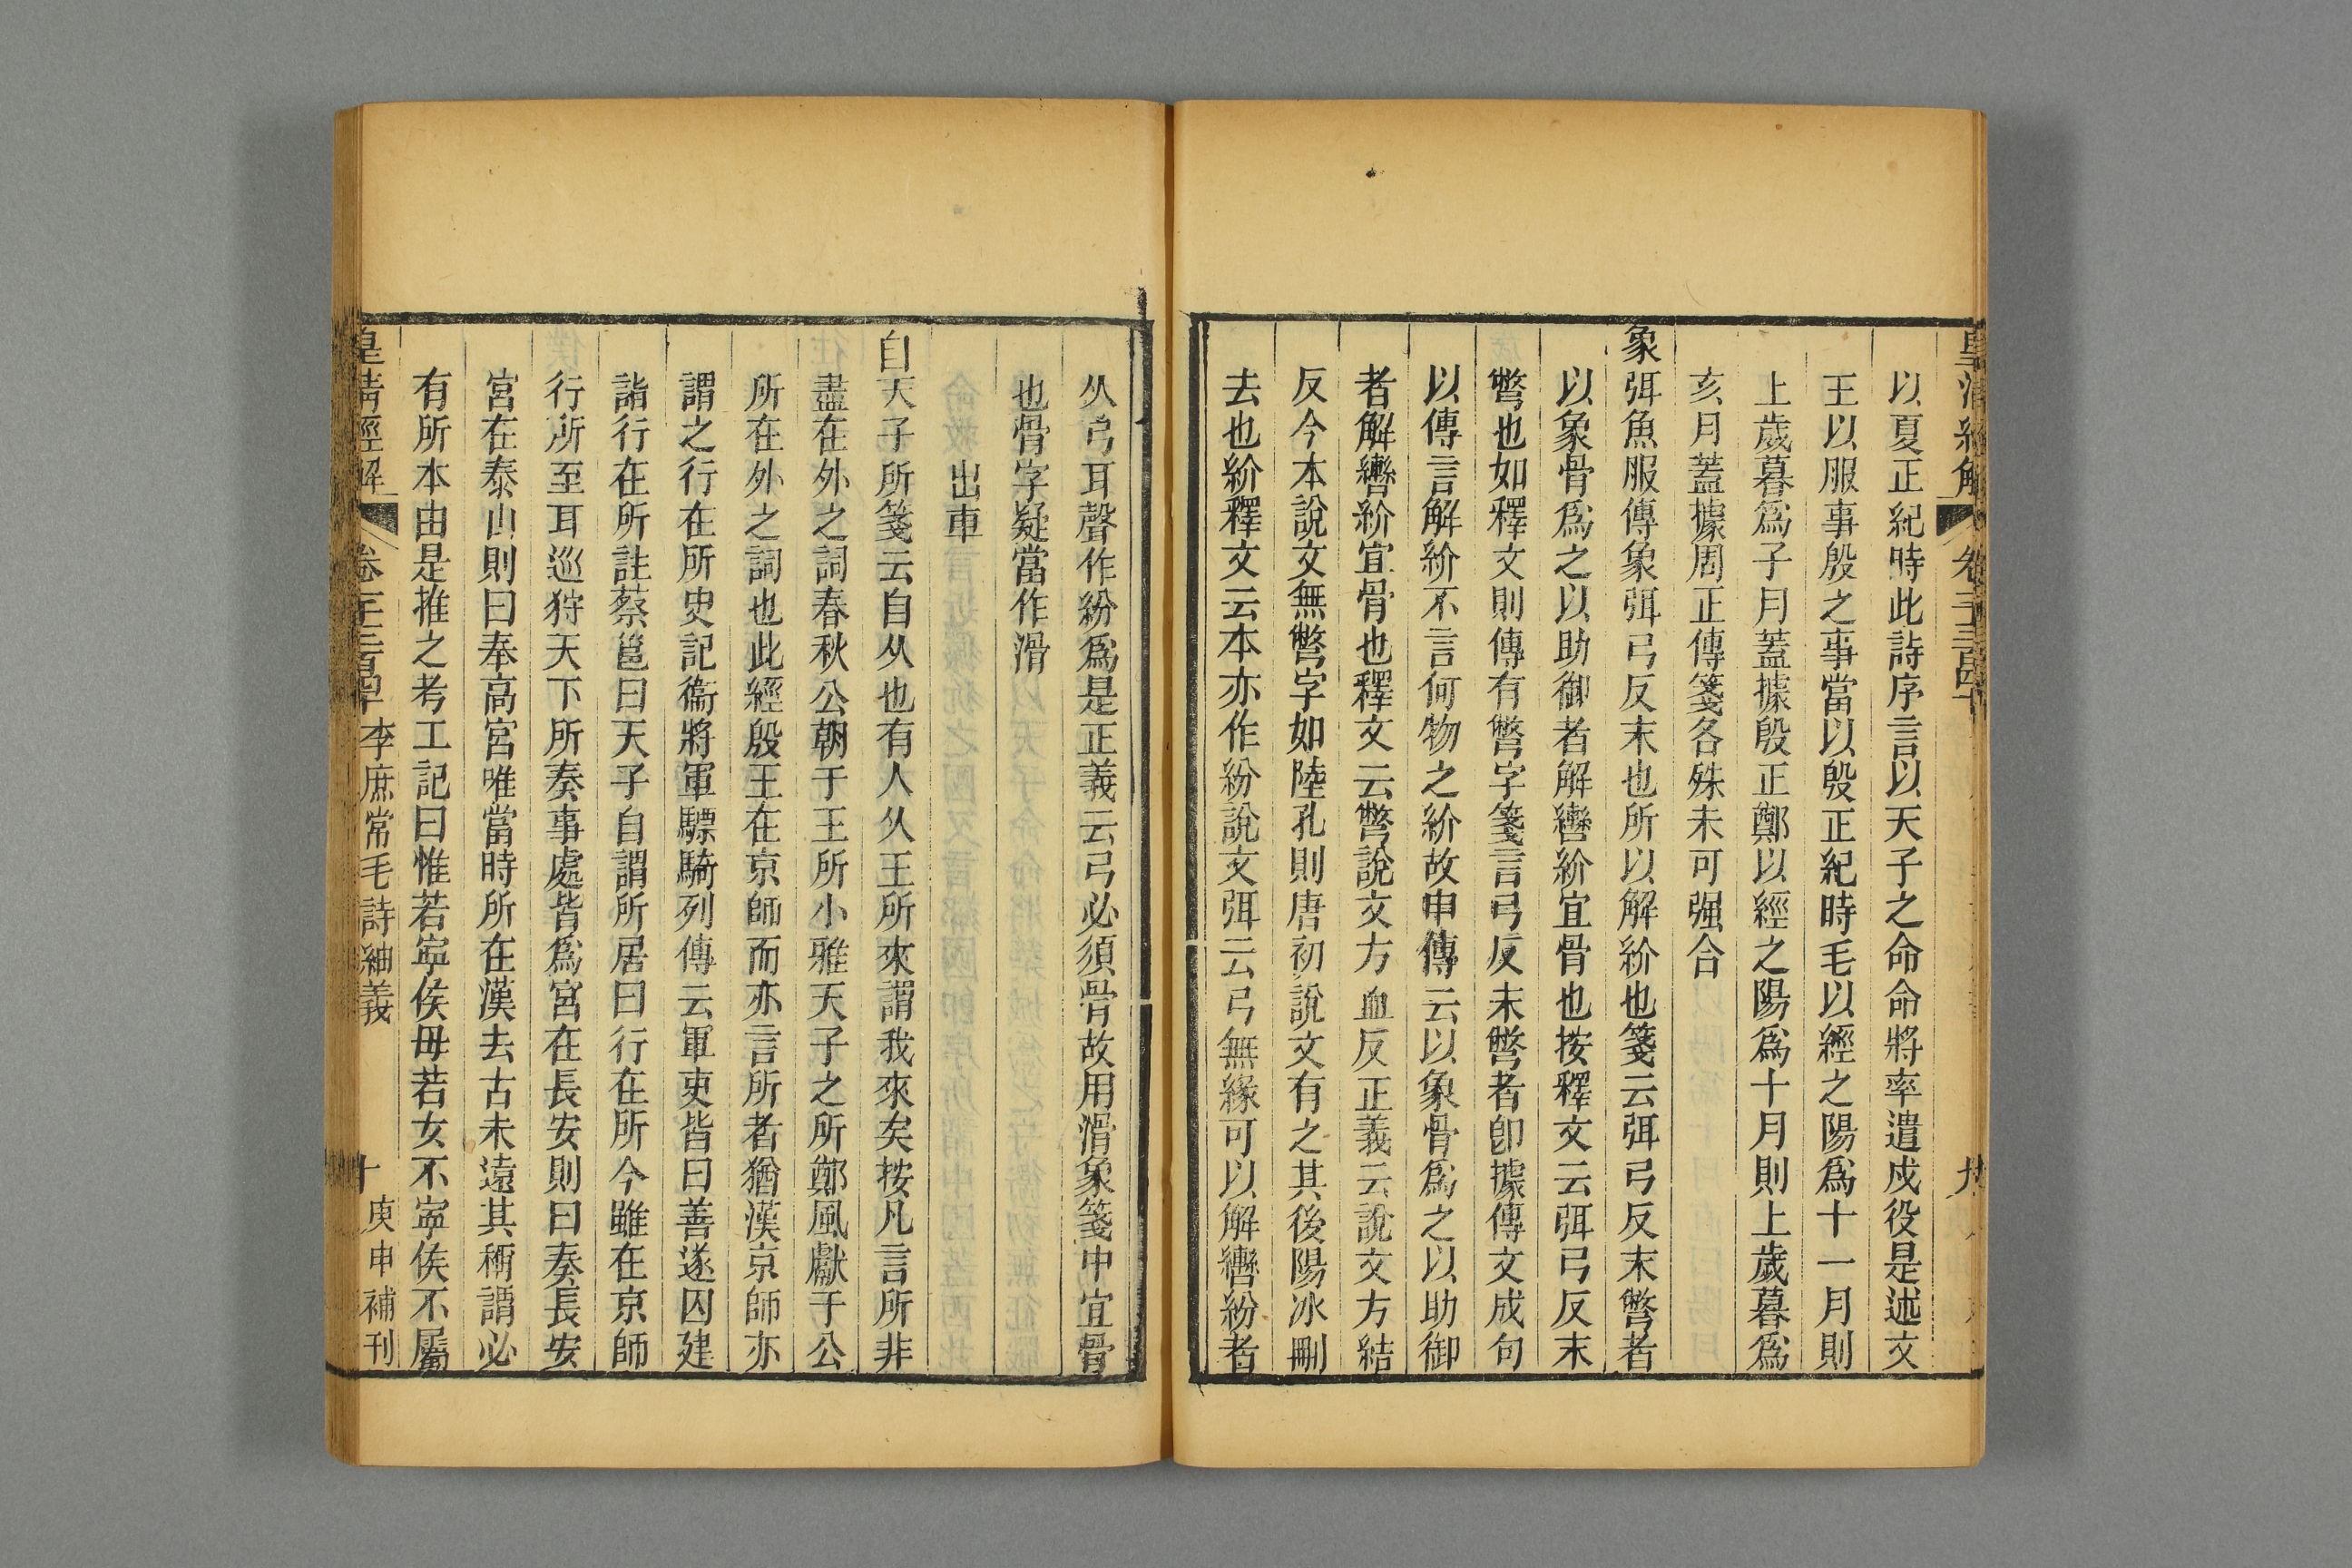 以夏正紀時此詩序言以天子之命命將率遣戍役是述文
王以服事殷之事當以殷正紀時毛以經之陽爲十一月則
上歲暮爲子月蓋據殷正鄭以經之陽爲十月則上歲暮爲
亥月蓋據周正傳箋各殊未可强合
象弭魚服傳象弭弓反末也所以解紒也箋云弭弓反末彆者
以象骨爲之以助御者解轡紒宜骨也按釋文云弭弓反末
彆也如釋文則傳有彆字箋言弓反末彆者卽據傳文成句
以傳言解紒不言何物之紒故申傳云以象骨爲之以助御
者解轡紒宜骨也釋文云彆說文方血反正義云說文方結
反今本說文無彆字如陸孔則唐初說文有之其後陽冰刪
去也紒釋文云本亦作紛說文弭云弓無緣可以解轡紛者
从弓耳聲作紛爲是正義云弓必須骨故用滑象箋中宜骨
也骨字疑當作滑
出車
自天子所箋云自从也有人从王所來謂我來矣按凡言所非
盡在外之詞春秋公朝于王所小雅天子之所鄭風獻于公
所在外之詞也此經殷王在京師而亦言所者猶漢京師亦
謂之行在所史記衞將軍驃騎列傳云軍吏皆曰善遂囚建
詣行在所註蔡邕曰天子自謂所居曰行在所今雖在京師
行所至耳巡狩天下所奏事處皆爲宮在長安則曰奏長安
宮在泰山則曰奉高宮唯當時所在漢去古未遠其稱謂必
有所本由是推之考工記曰惟若寧侯毋若女不寧侯不屬
皇清經解 李庶常毛詩紬義 十 庚申補刊